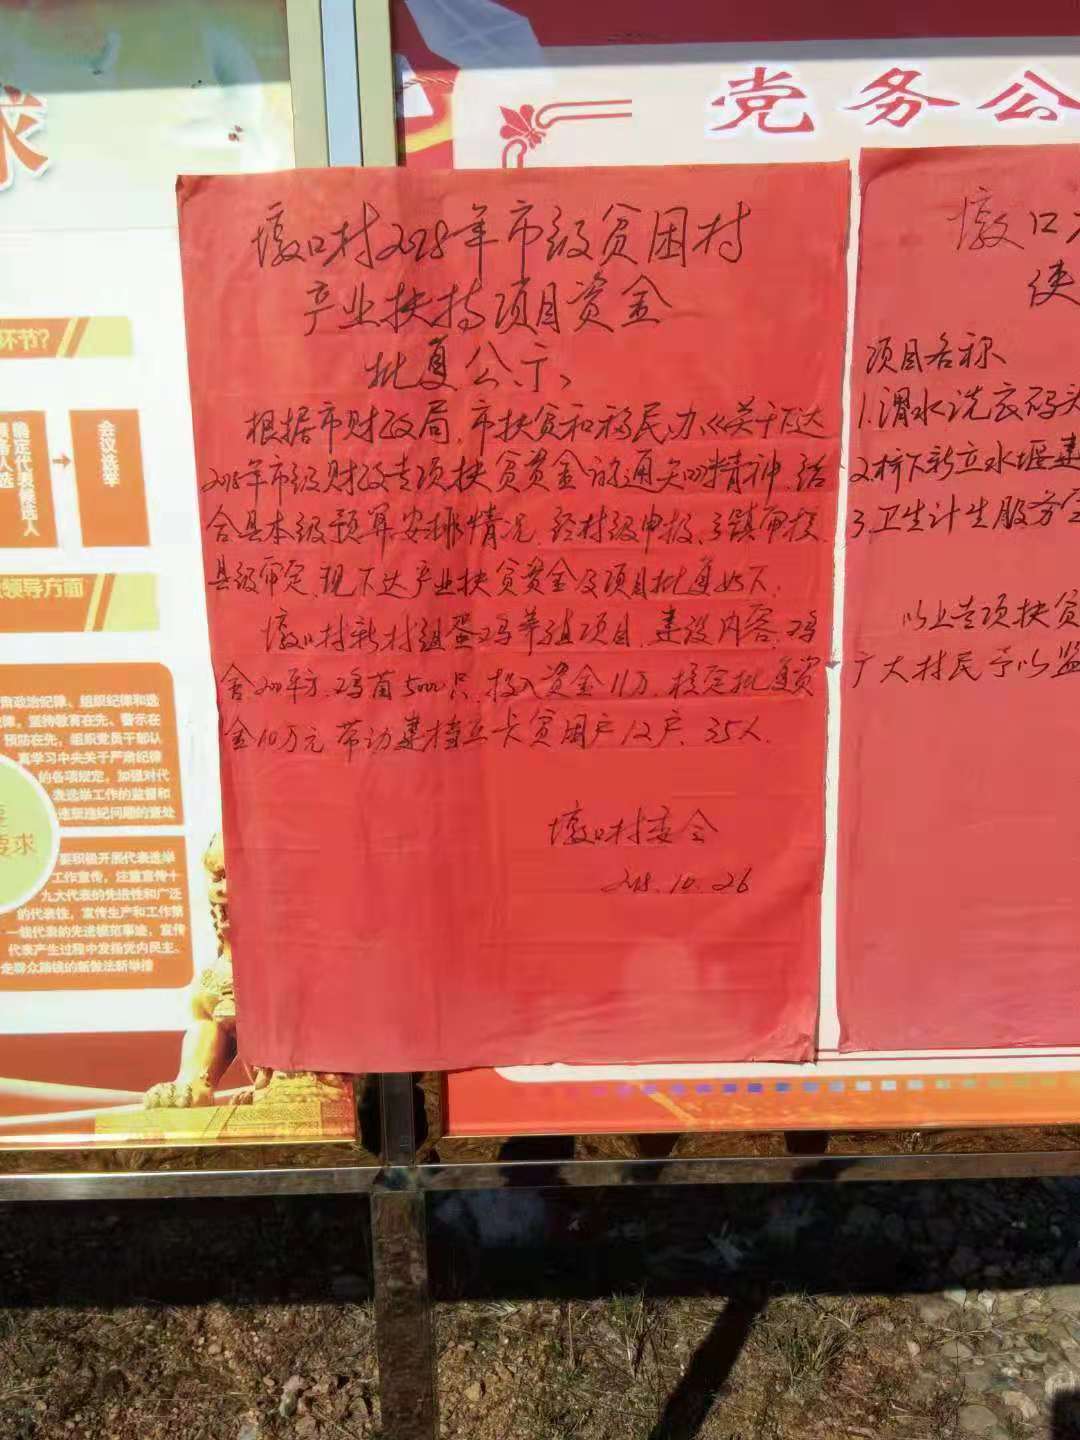 求
党务公
墩口村2018年市级贫困村
产业扶持项目资金
批复公示
根据市财政局、市扶贫和移民办《关于下达
2018年市级财政专项扶贫资金的通知》精神，结
合县本级预算安排情况，经村级申报、乡镇审核、
县级审定，现下达产业扶贫资金及项目批复如下
墩口村新村组蛋鸡养殖项目，建设内容：鸡
舍200平方，鸡苗5000只，投入资金11万，核定批复资
金10万元，带动建档立卡贫困户12户，35人。
墩口村委会
2018.10.26
墩口
使
项目名称
1.渭水洗衣码头
2.桥下新立水堰建
3.卫生计生服务室
以上专项扶贫
广大村民予以监
环节？
确定代表候选人
会议选举
领导方面
肃政治纪律、组织纪律和选
律，坚持教育在先、警示在
预防在先，组织党员干部认
真学习中央关于严肃纪律
的各项规定，加强对代
表选举工作的监督和
违规违纪问题的查处
要求
要积极开展代表选举
工作宣传，注重宣传十
九大代表的先进性和广泛
的代表性，宣传生产和工作第
一线代表的先进模范事迹，宣传
代表产生过程中发扬党内民主、
走群众路线的新做法新举措